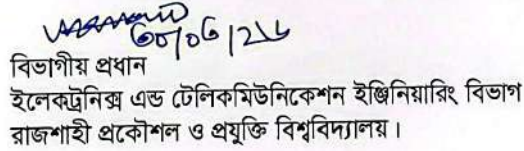 বিভাগীয় প্রধান
ইলেকট্রনিক্স এন্ড টেলিকমিউনিকেশন ইঞ্জিনিয়ারিং বিভাগ
রাজশাহী প্রকৌশল ও প্রযুক্তি বিশ্ববিদ্যালয়।